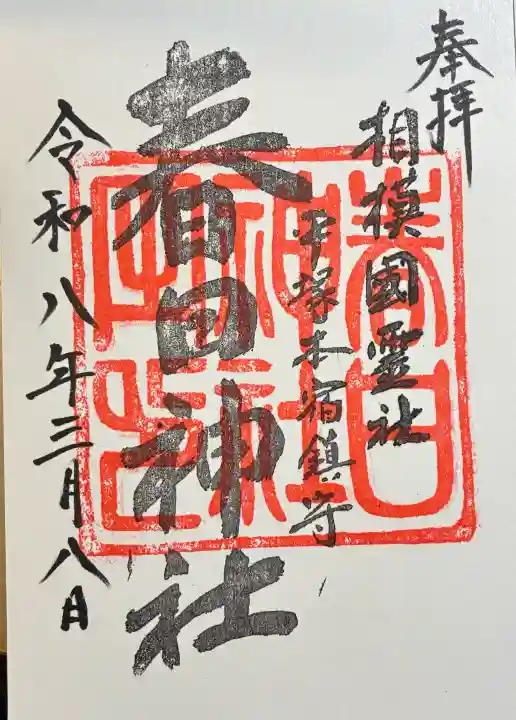 奉拝
相模國霊社
平塚本宿鎮守
春田神社
令和八年三月八日